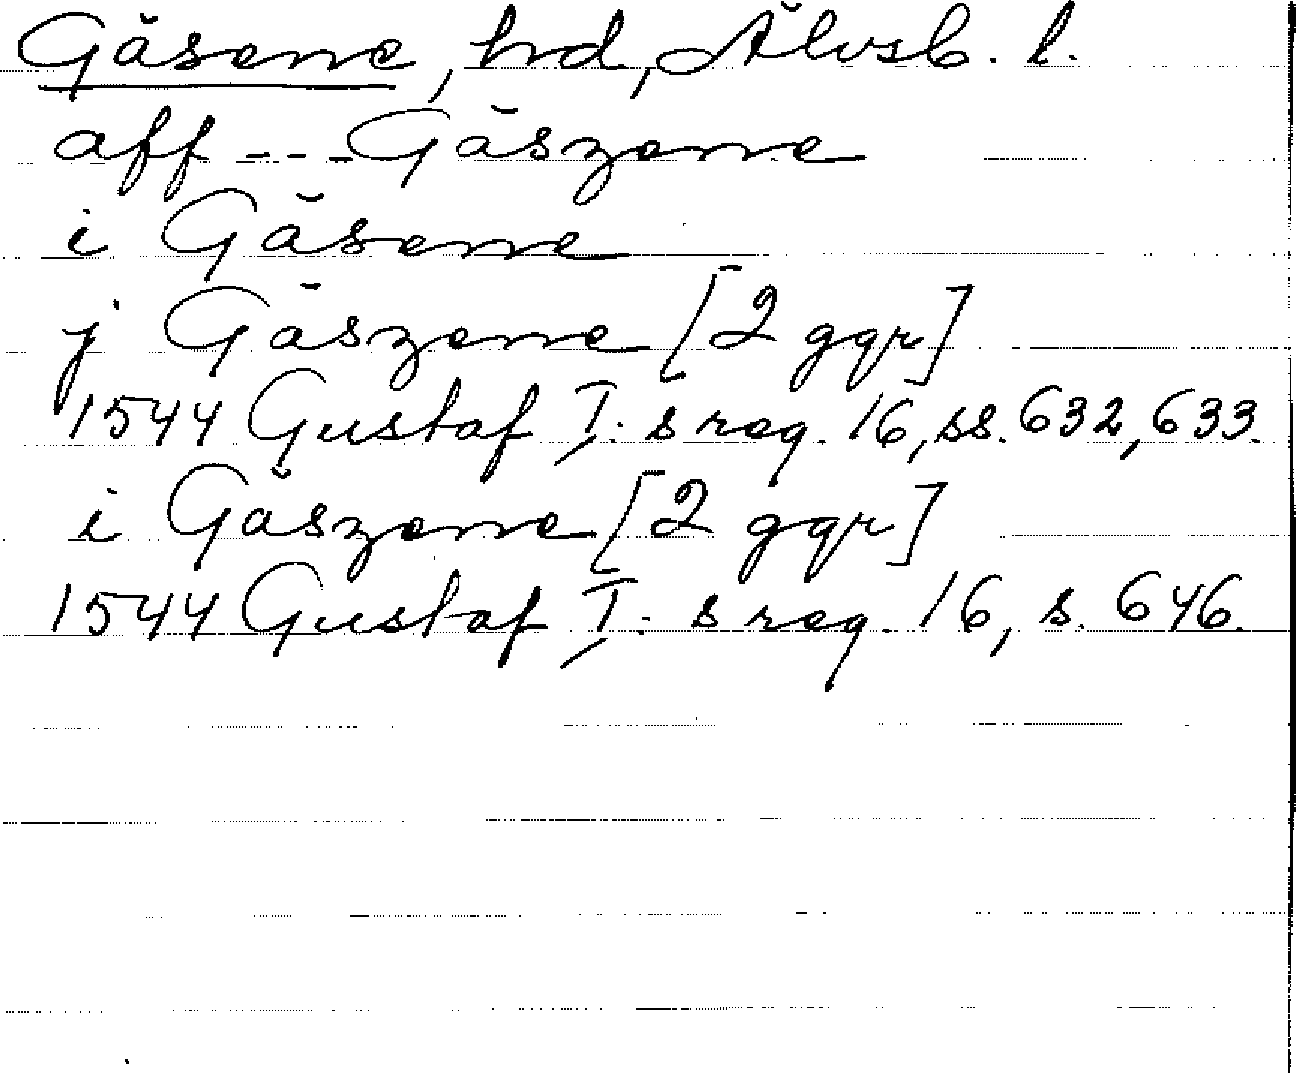 Gäsene, hd, Älvsb. l.
aff --- Gäszene
i Gäsene
j Gäszene [2 ggr]
1544 Gustaf I:s reg. 16, ss. 632, 633.
i Gäszene [2 ggr]
1544 Gustaf I:s reg. 16, s. 646.